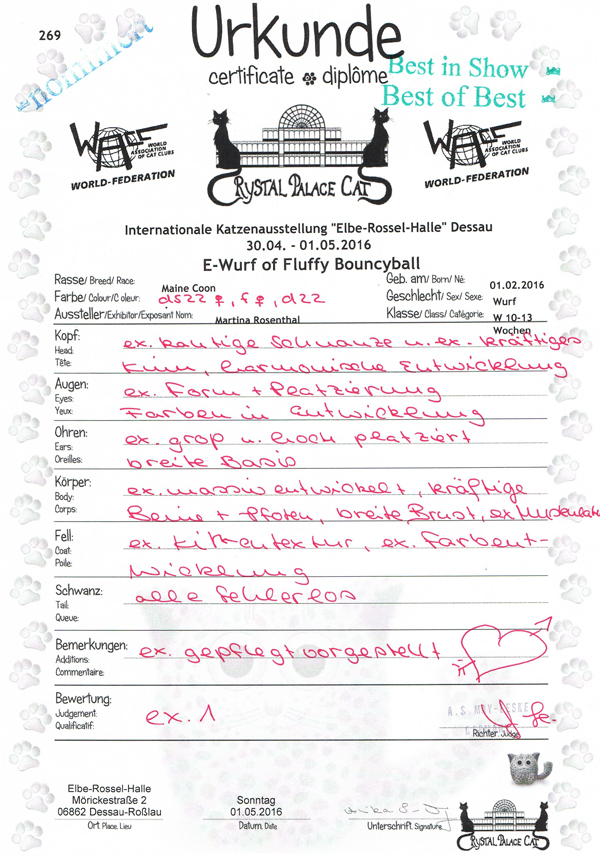 269
nominiert
Urkunde
certificate diplôme
Best in Show
Best of Best
WACC WORLD ASSOCIATION OF CAT CLUBS
WORLD-FEDERATION
CRYSTAL PALACE CATS
WACC WORLD ASSOCIATION OF CAT CLUBS
WORLD-FEDERATION
Internationale Katzenausstellung "Elbe-Rossel-Halle" Dessau
30.04. - 01.05.2016
E-Wurf of Fluffy Bouncyball
Rasse/ Breed/ Race: Maine Coon Geb. am/ Born/ Né: 01.02.2016
Farbe/ Colour/C oleur: ds22 ♀, f ♀, d22 Geschlecht/ Sex/ Sexe: Wurf
Aussteller/Exhibitor/Exposant Nom: Martina Rosenthal Klasse/ Class/ Catégorie: W 10-13 Wochen
Kopf: ex. kantige Schnauze u. ex. kräftiges
Head:
Tête: Kinn, harmonische Entwicklung
Augen: ex. Form + Platzierung
Eyes:
Yeux: Farben in Entwicklung
Ohren: ex. groß u. hoch platziert
Ears:
Oreilles: breite Basis
Körper: ex. massiv entwickelt, kräftige
Body:
Corps: Beine + Pfoten, breite Brust, ex.
Fell: ex. Kittentextur, ex. Farbent-
Coat:
Poile: wicklung
Schwanz: alle fehlerlos
Tail:
Queue:
Bemerkungen: ex. gepflegt vorgestellt
Additions:
Commentaire:
Bewertung:
Judgement: ex. 1
Qualificatif:
Richter/Judge
Elbe-Rossel-Halle
Mörickestraße 2
06862 Dessau-Roßlau
Ort Place, Lieu
Sonntag
01.05.2016
Datum, Date
Unterschrift, Signature
CRYSTAL PALACE CATS